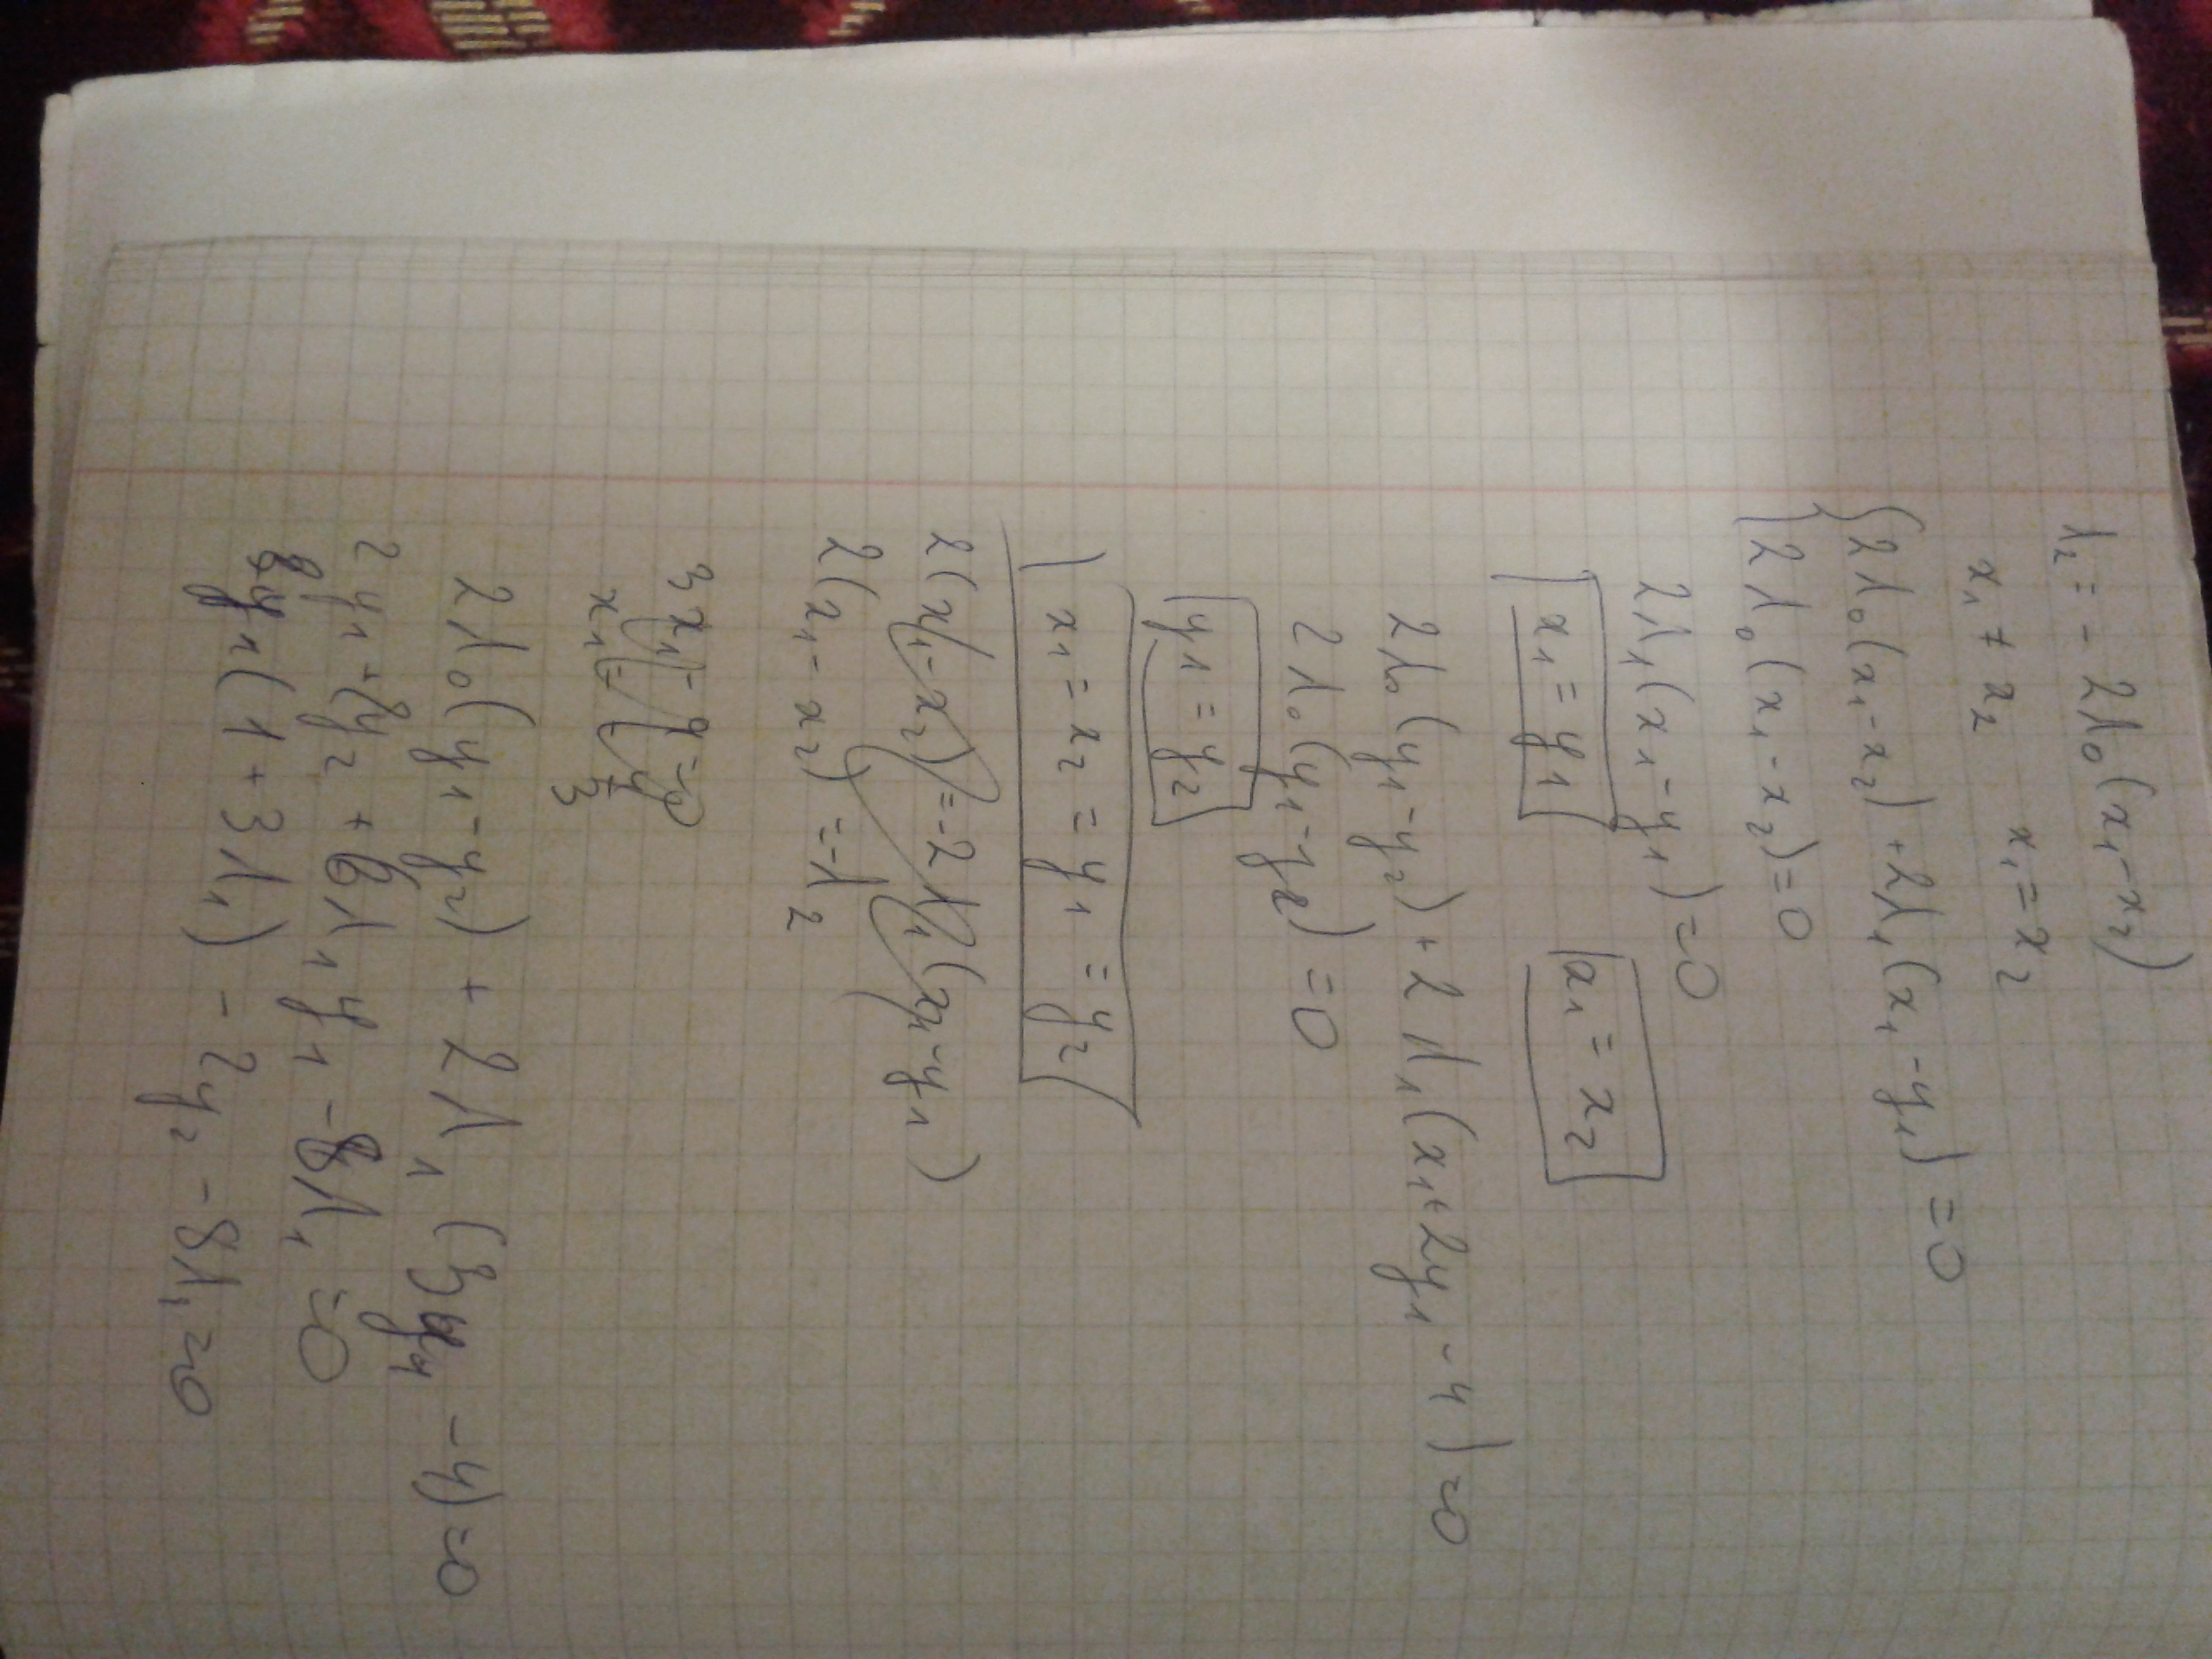 λ₂ = - 2λ₀(x₁-x₂)
x₁ ≠ x₂    x₁ = x₂
{ 2λ₀(x₁-x₂) + 2λ₁(x₁-y₁) = 0
{ 2λ₀(x₁-x₂) = 0
2λ₁(x₁-y₁) = 0
x₁ = y₁    x₁ = x₂
2λ₀(y₁-y₂) + 2λ₁(x₁+2y₁-4) = 0
2λ₀(y₁-y₂) = 0
y₁ = y₂
x₁ = x₂ = y₁ = y₂
2(x₁-x₂) = -2λ₁(x₁-y₁)
2(x₁-x₂) = -λ₂
3x₁-4=0
x₁ = 4/3
2λ₀(y₁-y₂) + 2λ₁(3y₁-4) = 0
2y₁-2y₂ + 6λ₁y₁ - 8λ₁ = 0
2y₁(1+3λ₁) - 2y₂ - 8λ₁ = 0